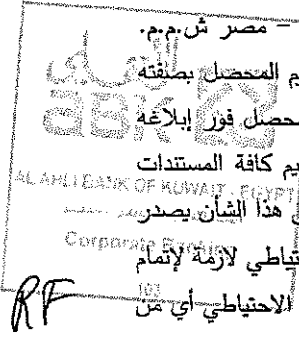 – مصر ش.م.م.
م المحصل بصفته
محصل فور إبلاغه
يم كافة المستندات
AL AHLI BANK OF KUWAIT - EGYPT
هذا الشأن يصدر
Corporate Banking
تياطي لازمة لإتمام
103
الاحتياطي أي من
RF